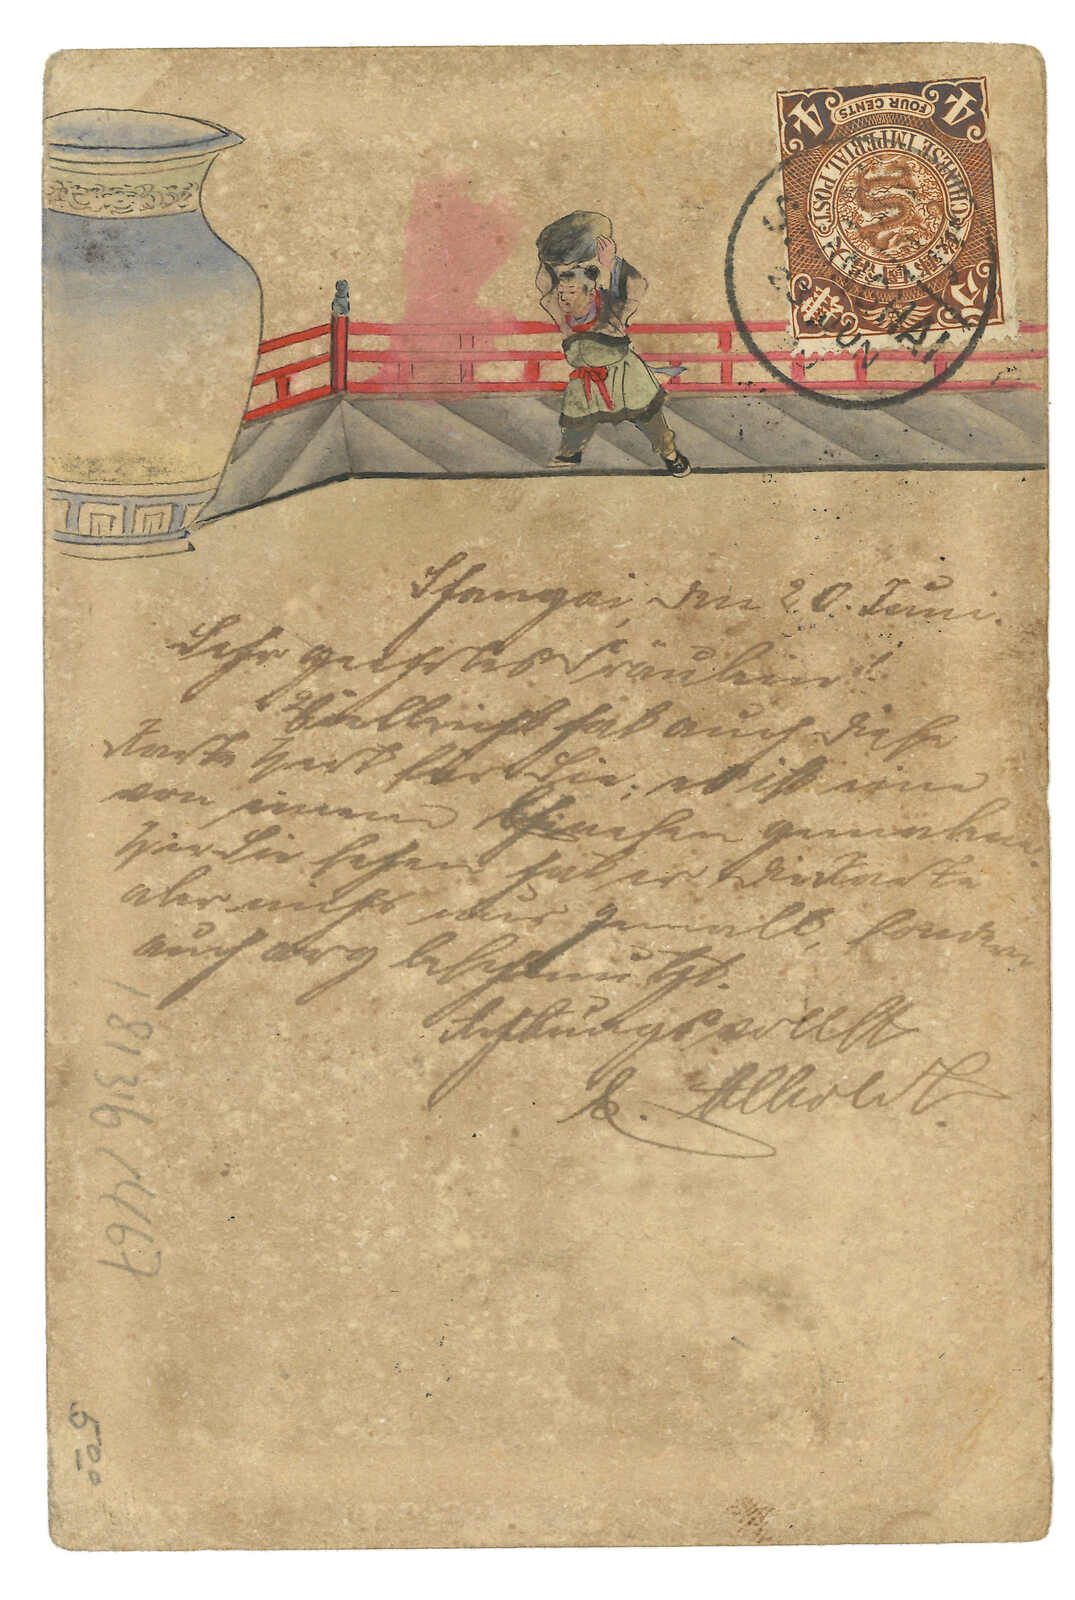 FOUR CENTS
4 4
CHINESE IMPERIAL POST
HAI
JUN
Shangai, den 20. Juni.
Sehr geehrtes Fräulein!
Vielleicht hat auch diese
Karte Wert für Sie; es ist eine
von einem Chinesen gemalene.
Wie Sie sehen hat er die Karte
aber nicht nur gemalt, sondern
auch arg beschmutzt.
Achtungsvollst
E. Alboldt.
181316/1467
500